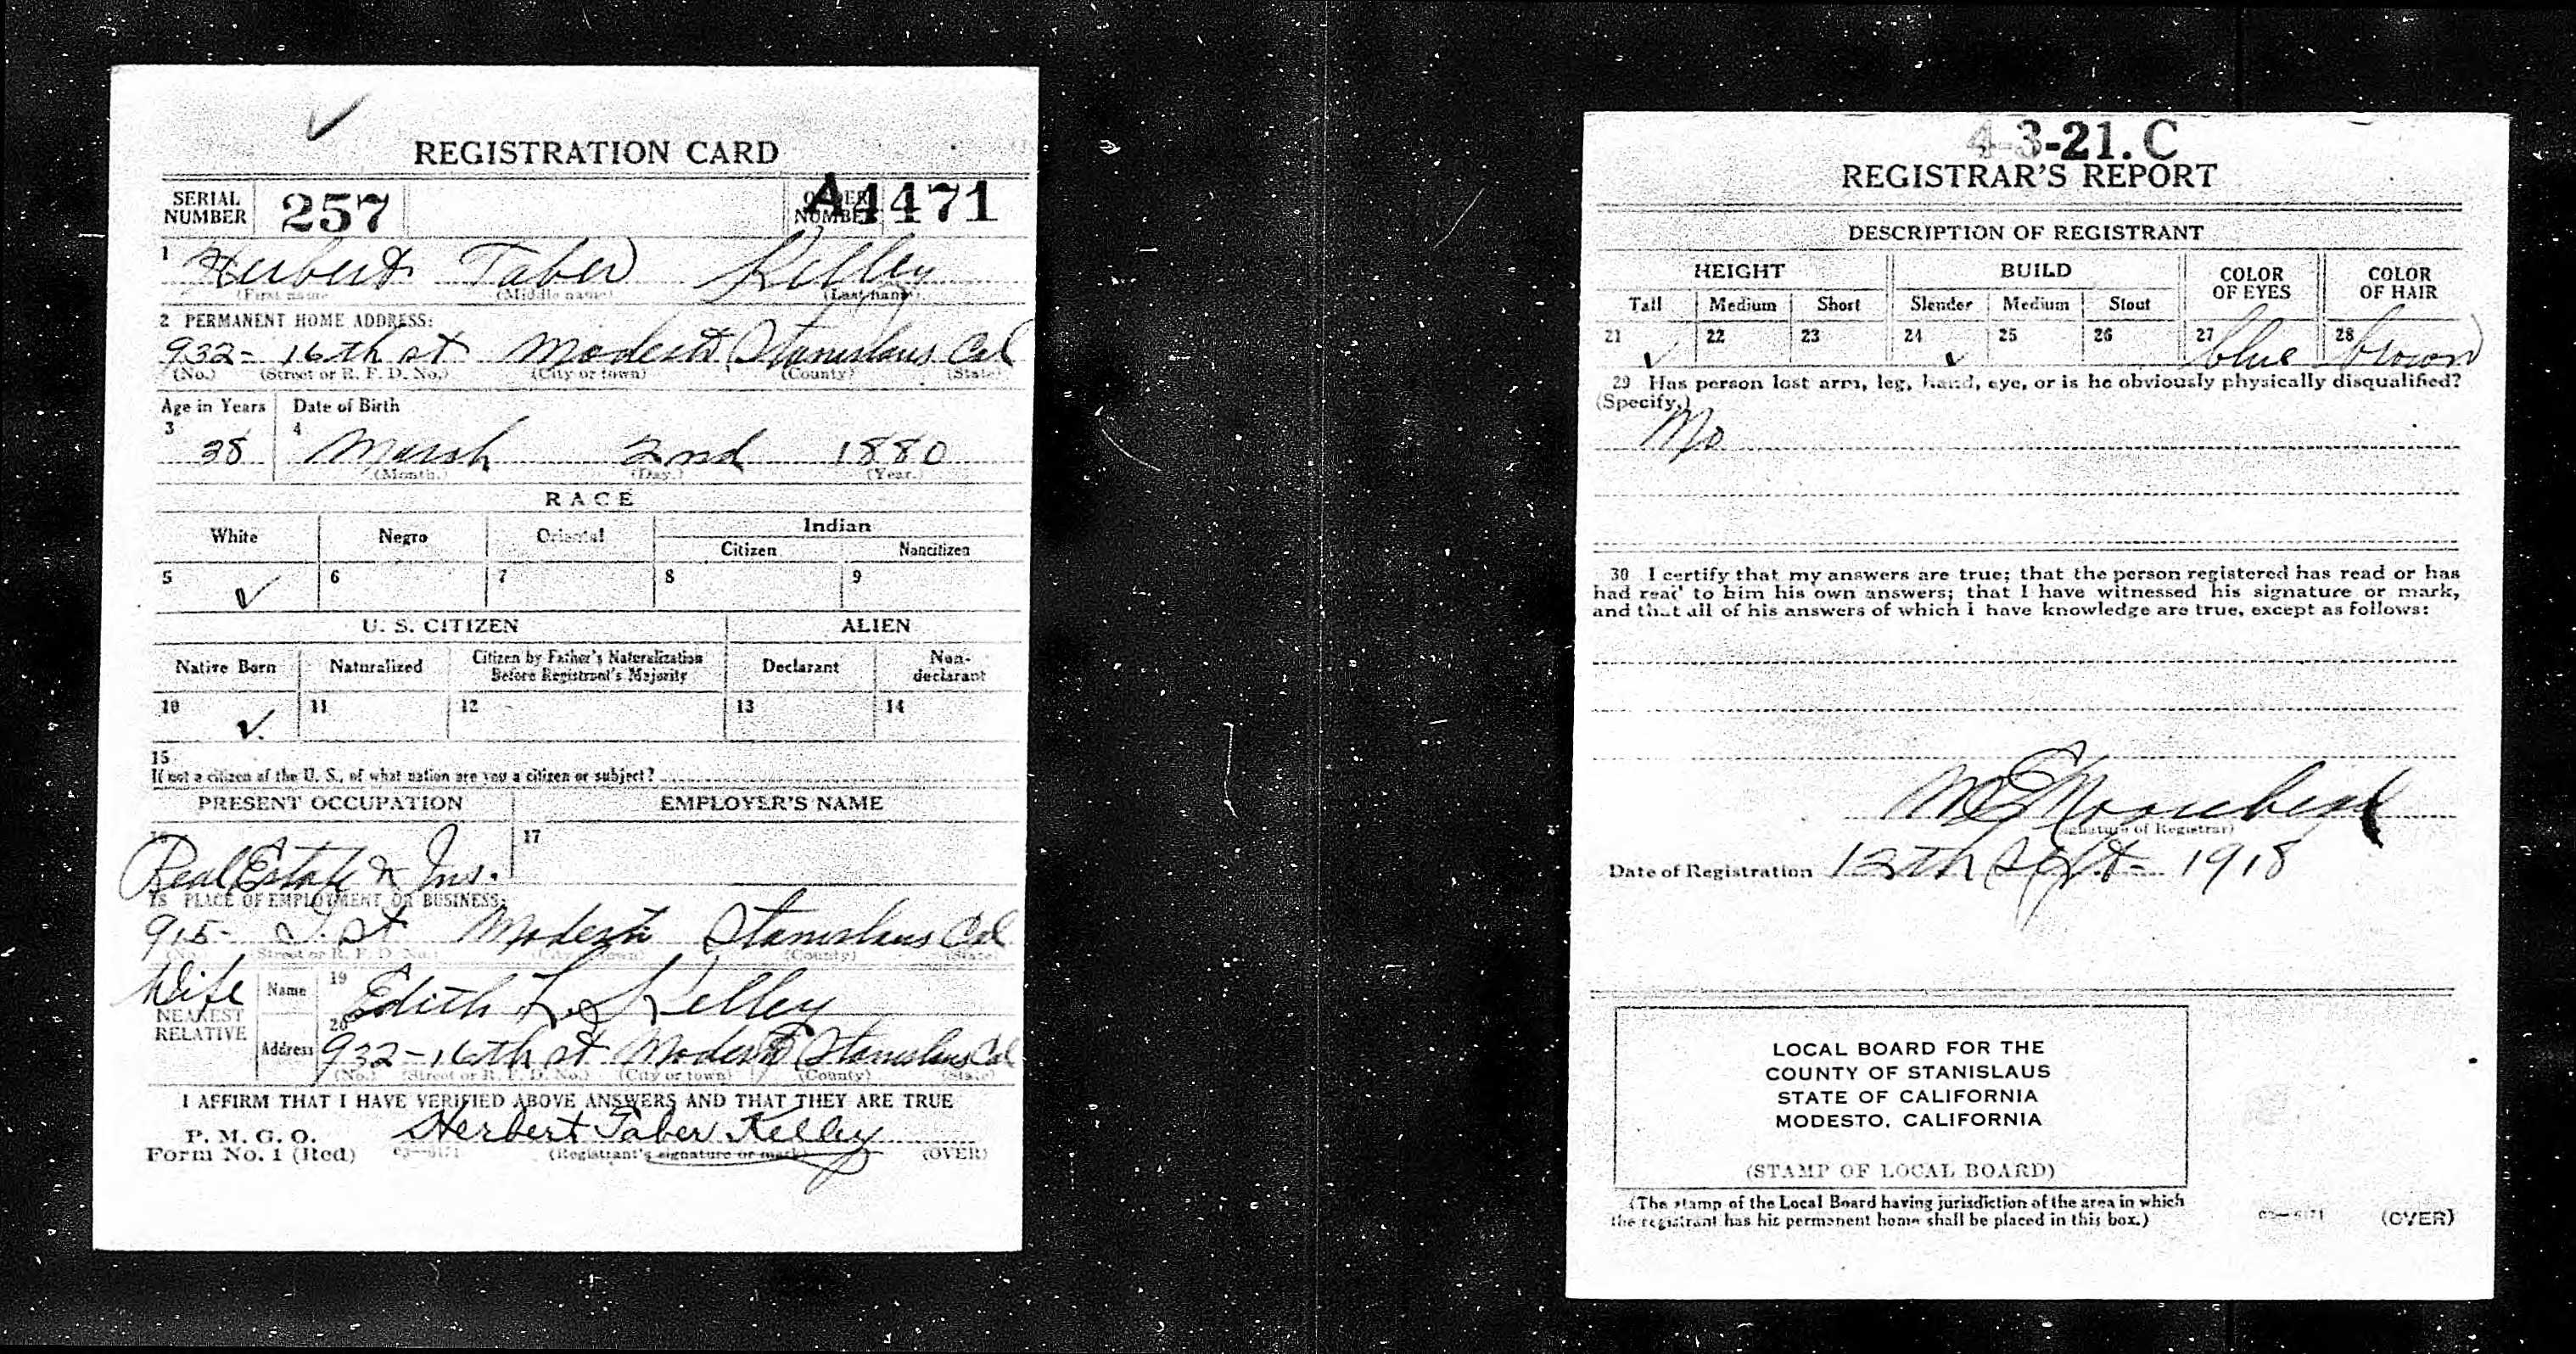 REGISTRATION CARD
SERIAL NUMBER 257 ORDER NUMBER A4471
1 Herbert Taber Kelley
(First name) (Middle name) (Last name)
2 PERMANENT HOME ADDRESS:
932- 16th st Modesto Stanislaus Cal
(No.) (Street or R. F. D. No.) (City or town) (County) (State)
Age in Years Date of Birth
3 38 4 March 2nd 1880
(Month.) (Day.) (Year.)
RACE
White Negro Oriental Indian
Citizen Noncitizen
5 ✓ 6 7 8 9
U. S. CITIZEN ALIEN
Native Born Naturalized Citizen by Father's Naturalization Before Registrant's Majority Declarant Non-declarant
10 ✓ 11 12 13 14
15
If not a citizen of the U. S., of what nation are you a citizen or subject?
PRESENT OCCUPATION EMPLOYER'S NAME
16 Real Estate & Ins. 17
18 PLACE OF EMPLOYMENT OR BUSINESS:
915- I. st Modesto Stanislaus Cal
(No.) (Street or R. F. D. No.) (City or town) (County) (State)
Wife
NEAREST RELATIVE
Name 19 Edith L. Kelley
Address 20 932-16th st Modesto Stanislaus Cal
(No.) (Street or R. F. D. No.) (City or town) (County) (State)
I AFFIRM THAT I HAVE VERIFIED ABOVE ANSWERS AND THAT THEY ARE TRUE
P. M. G. O.
Form No. 1 (Red) 03—6171 Herbert Taber Kelley
(Registrant's signature or mark) (OVER)
4-3-21. C
REGISTRAR'S REPORT
DESCRIPTION OF REGISTRANT
HEIGHT BUILD COLOR OF EYES COLOR OF HAIR
Tall Medium Short Slender Medium Stout
21 ✓ 22 23 24 ✓ 25 26 27 blue 28 brown
29 Has person lost arm, leg, hand, eye, or is he obviously physically disqualified?
(Specify.)
No
30 I certify that my answers are true; that the person registered has read or has
had read to him his own answers; that I have witnessed his signature or mark,
and that all of his answers of which I have knowledge are true, except as follows:
(Signature of Registrar)
Date of Registration 12th Sept- 1918
LOCAL BOARD FOR THE
COUNTY OF STANISLAUS
STATE OF CALIFORNIA
MODESTO, CALIFORNIA
(STAMP OF LOCAL BOARD)
(The stamp of the Local Board having jurisdiction of the area in which
the registrant has his permanent home shall be placed in this box.)
03—6171 (OVER)